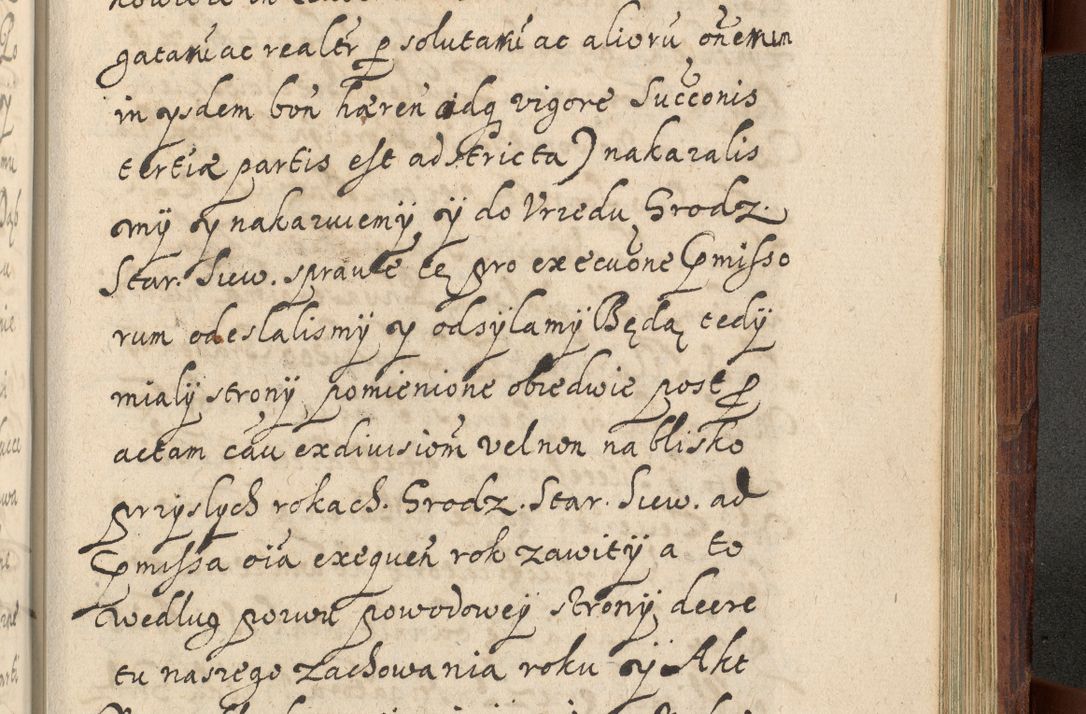 gatam̃ ac realtr̃ p solutam̃ ac aliorũ oñem in
in ysdem boñ hæreñ adq vigore Succonis
tertiæ partis est adstricta) nakazalis
mÿ y nakazuiemÿ ÿ do Vrzedu Grodz.
Star. Siew. sprawe tę pro execuõne Cpmisso
rum odeslalismÿ y odsÿlamÿ Będą tedÿ
mialÿ stronÿ pomienione obiedwie post p
actam cãu exdiuisiom̃ vel non na blisko
przÿslych rokach. Grodz. Star. Siew. ad
Cpmissa oĩa exequeñ rok zawitÿ a to
wedlug pozwu powodoweÿ stronÿ decre
tu naszego zachowania roku ÿ Akt